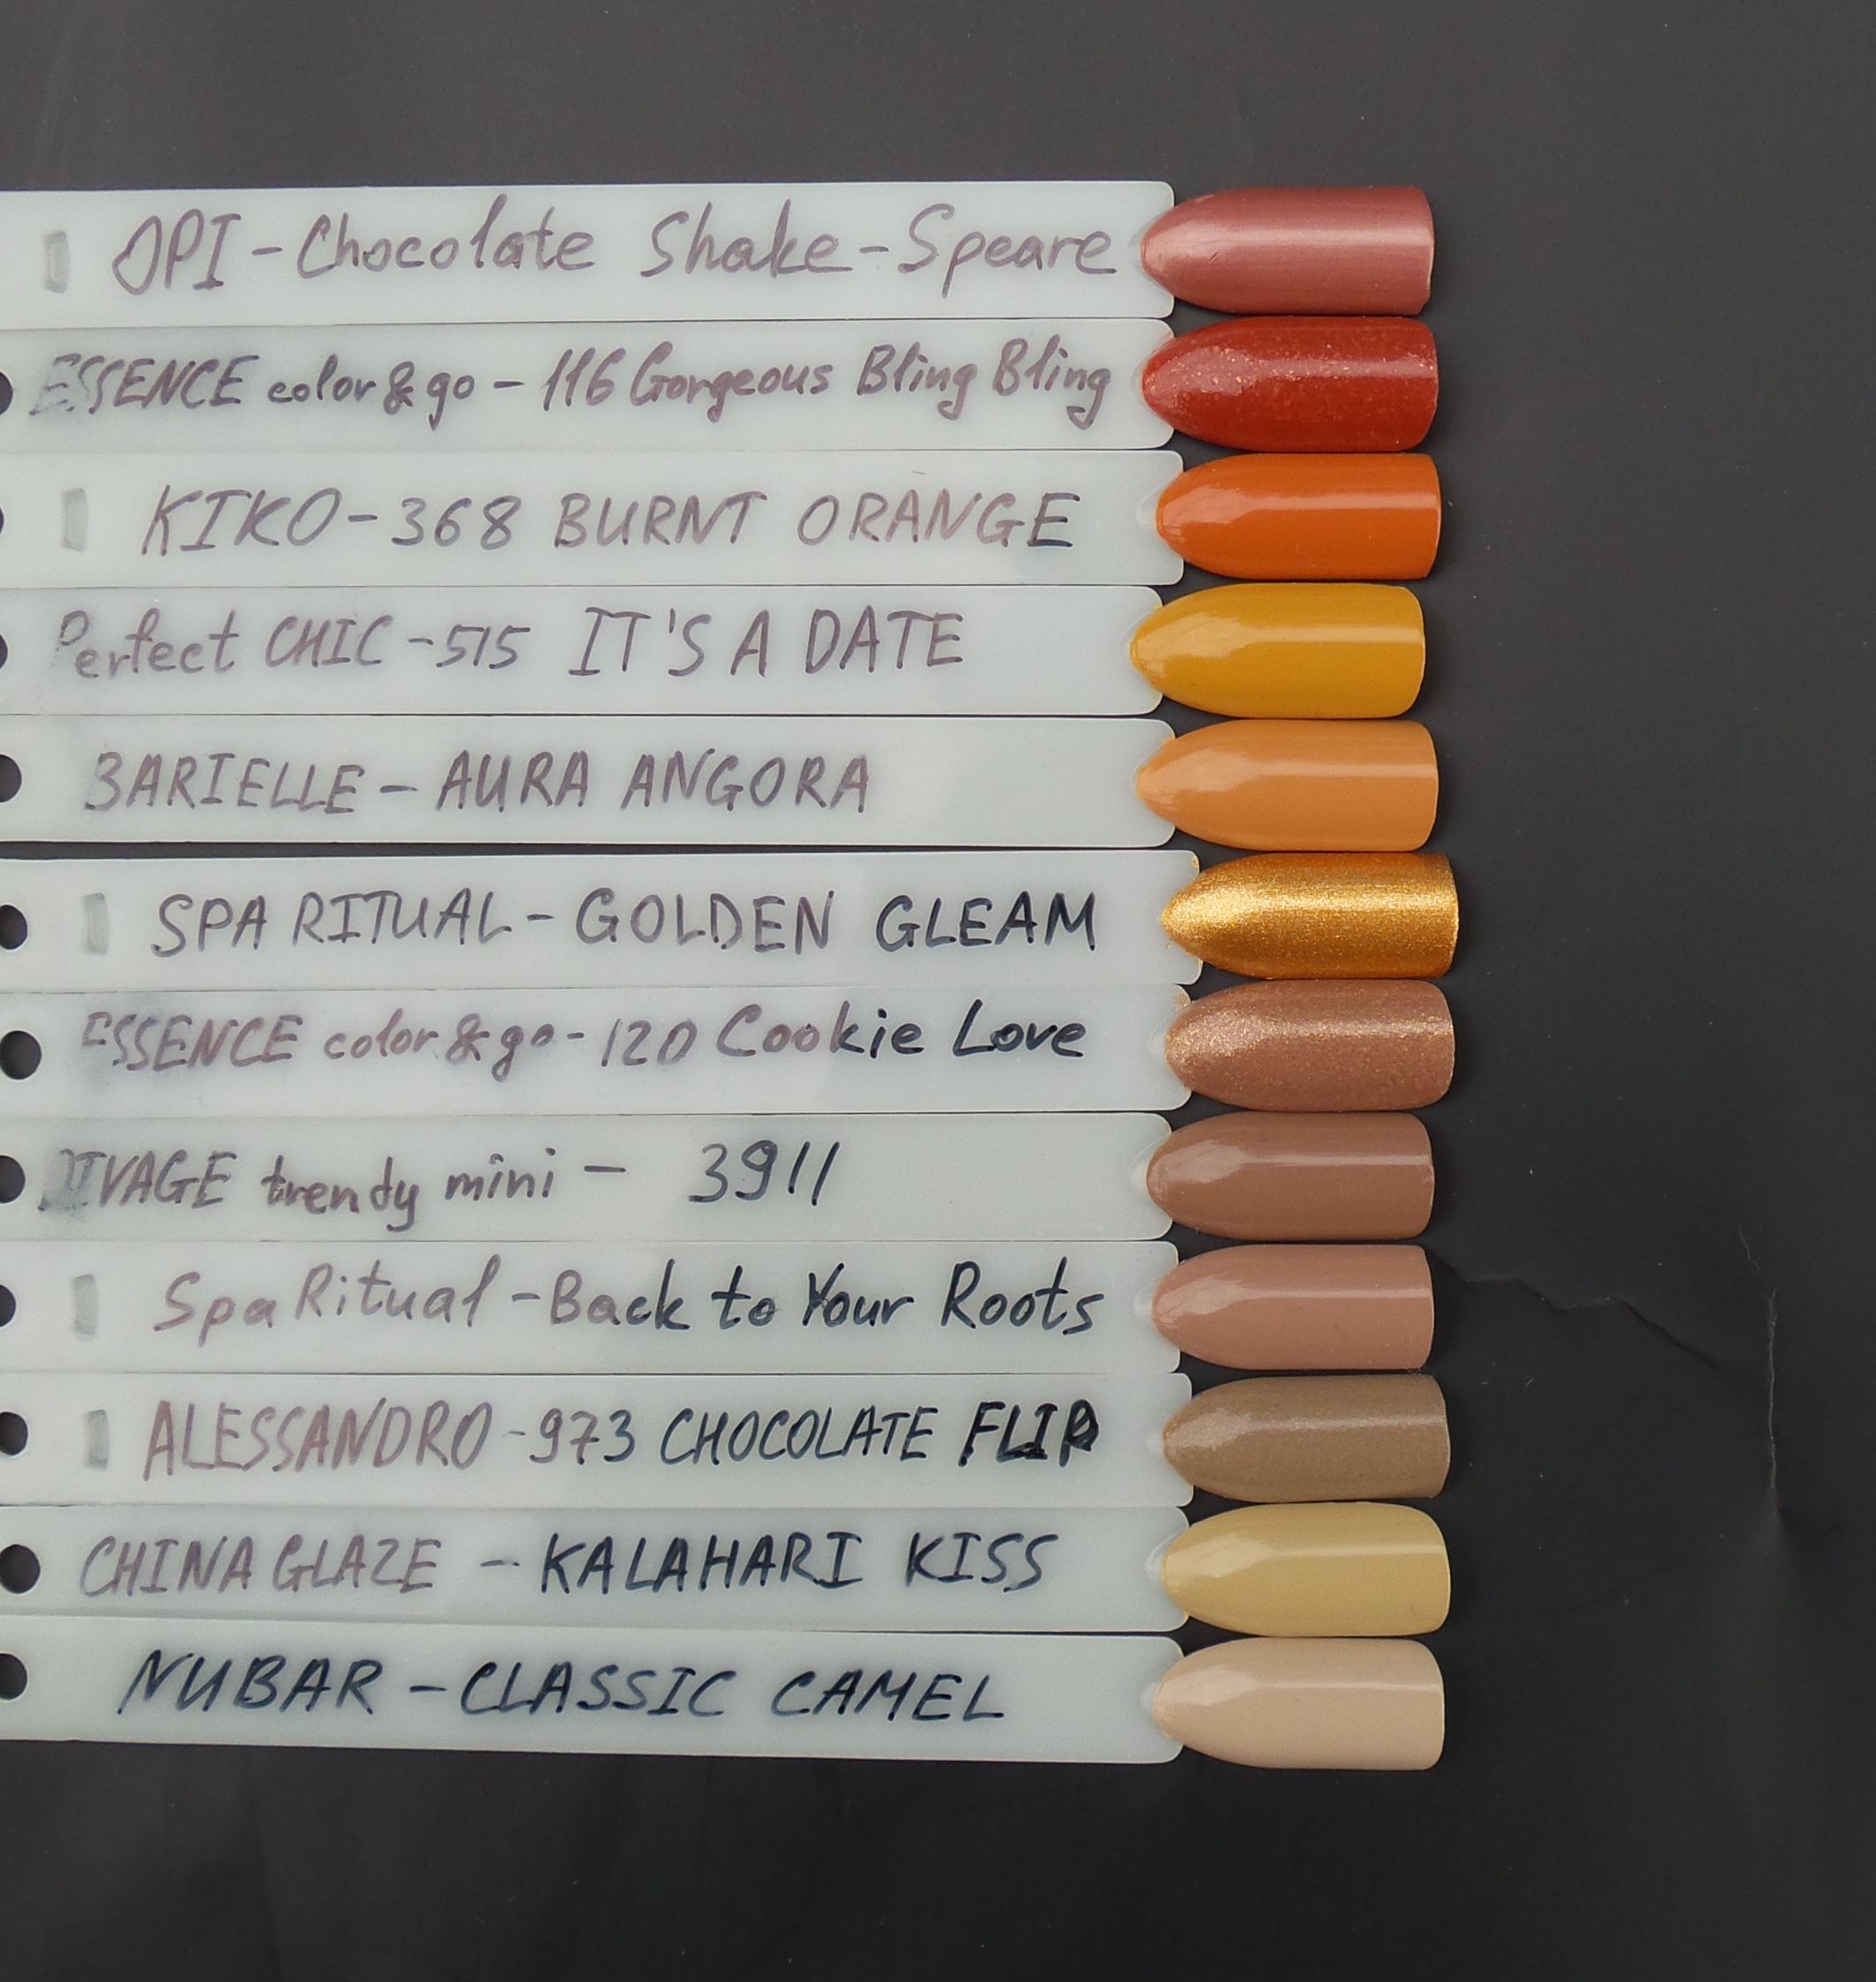 OPI - Chocolate Shake-Speare
ESSENCE color & go - 116 Gorgeous Bling Bling
KIKO - 368 BURNT ORANGE
Perfect CHIC - 515 IT'S A DATE
BARIELLE - AURA ANGORA
SPA RITUAL - GOLDEN GLEAM
ESSENCE color & go - 120 Cookie Love
DIVAGE trendy mini - 3911
Spa Ritual - Back to Your Roots
ALESSANDRO - 973 CHOCOLATE FLIP
CHINA GLAZE - KALAHARI KISS
NUBAR - CLASSIC CAMEL